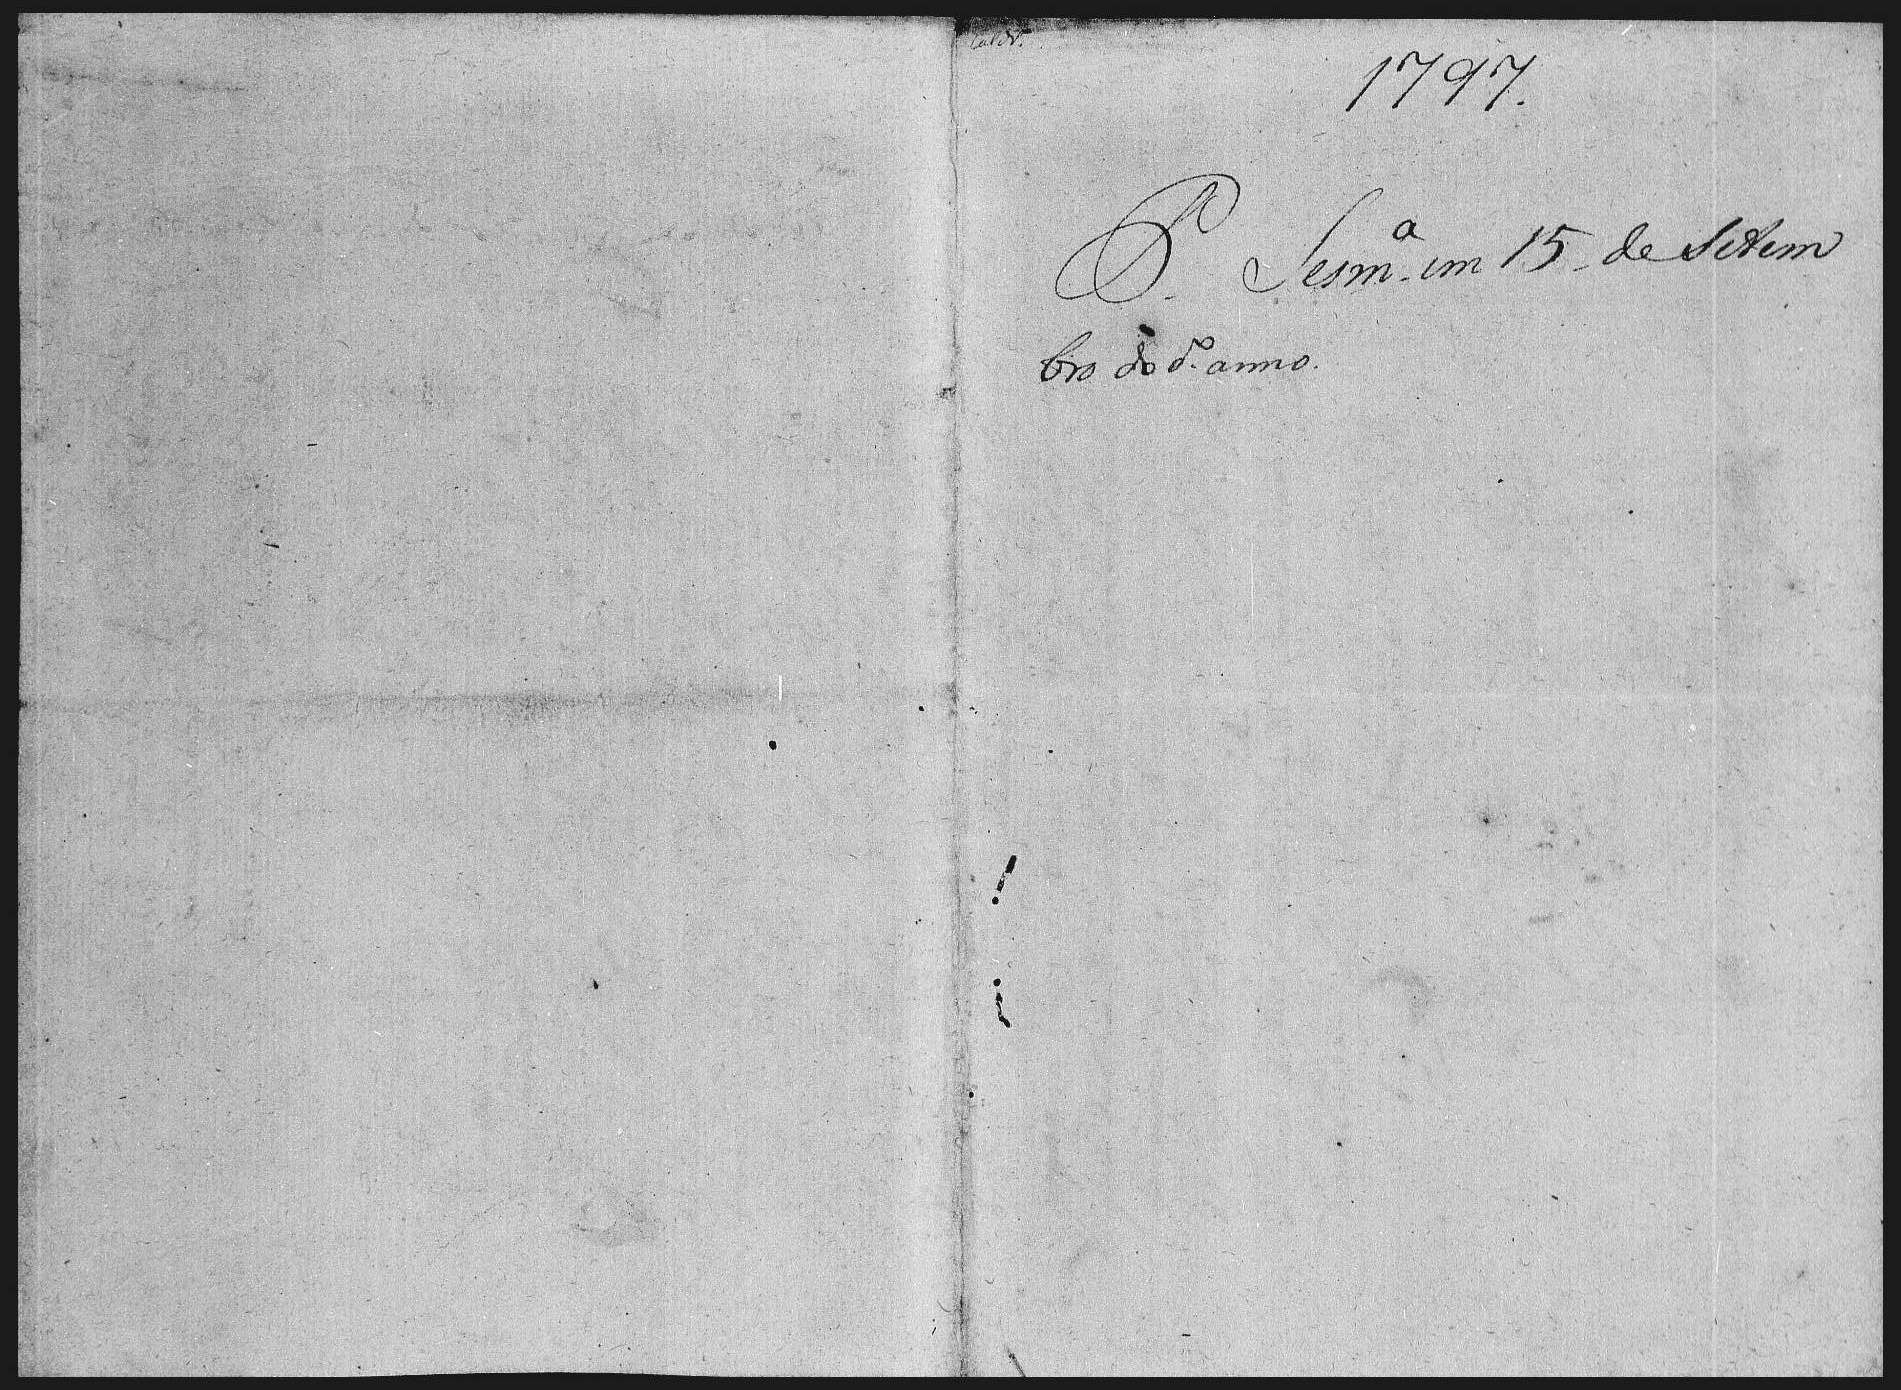 1797.
P. Sesm.ª em 15 de Setem
bro do d.º anno.